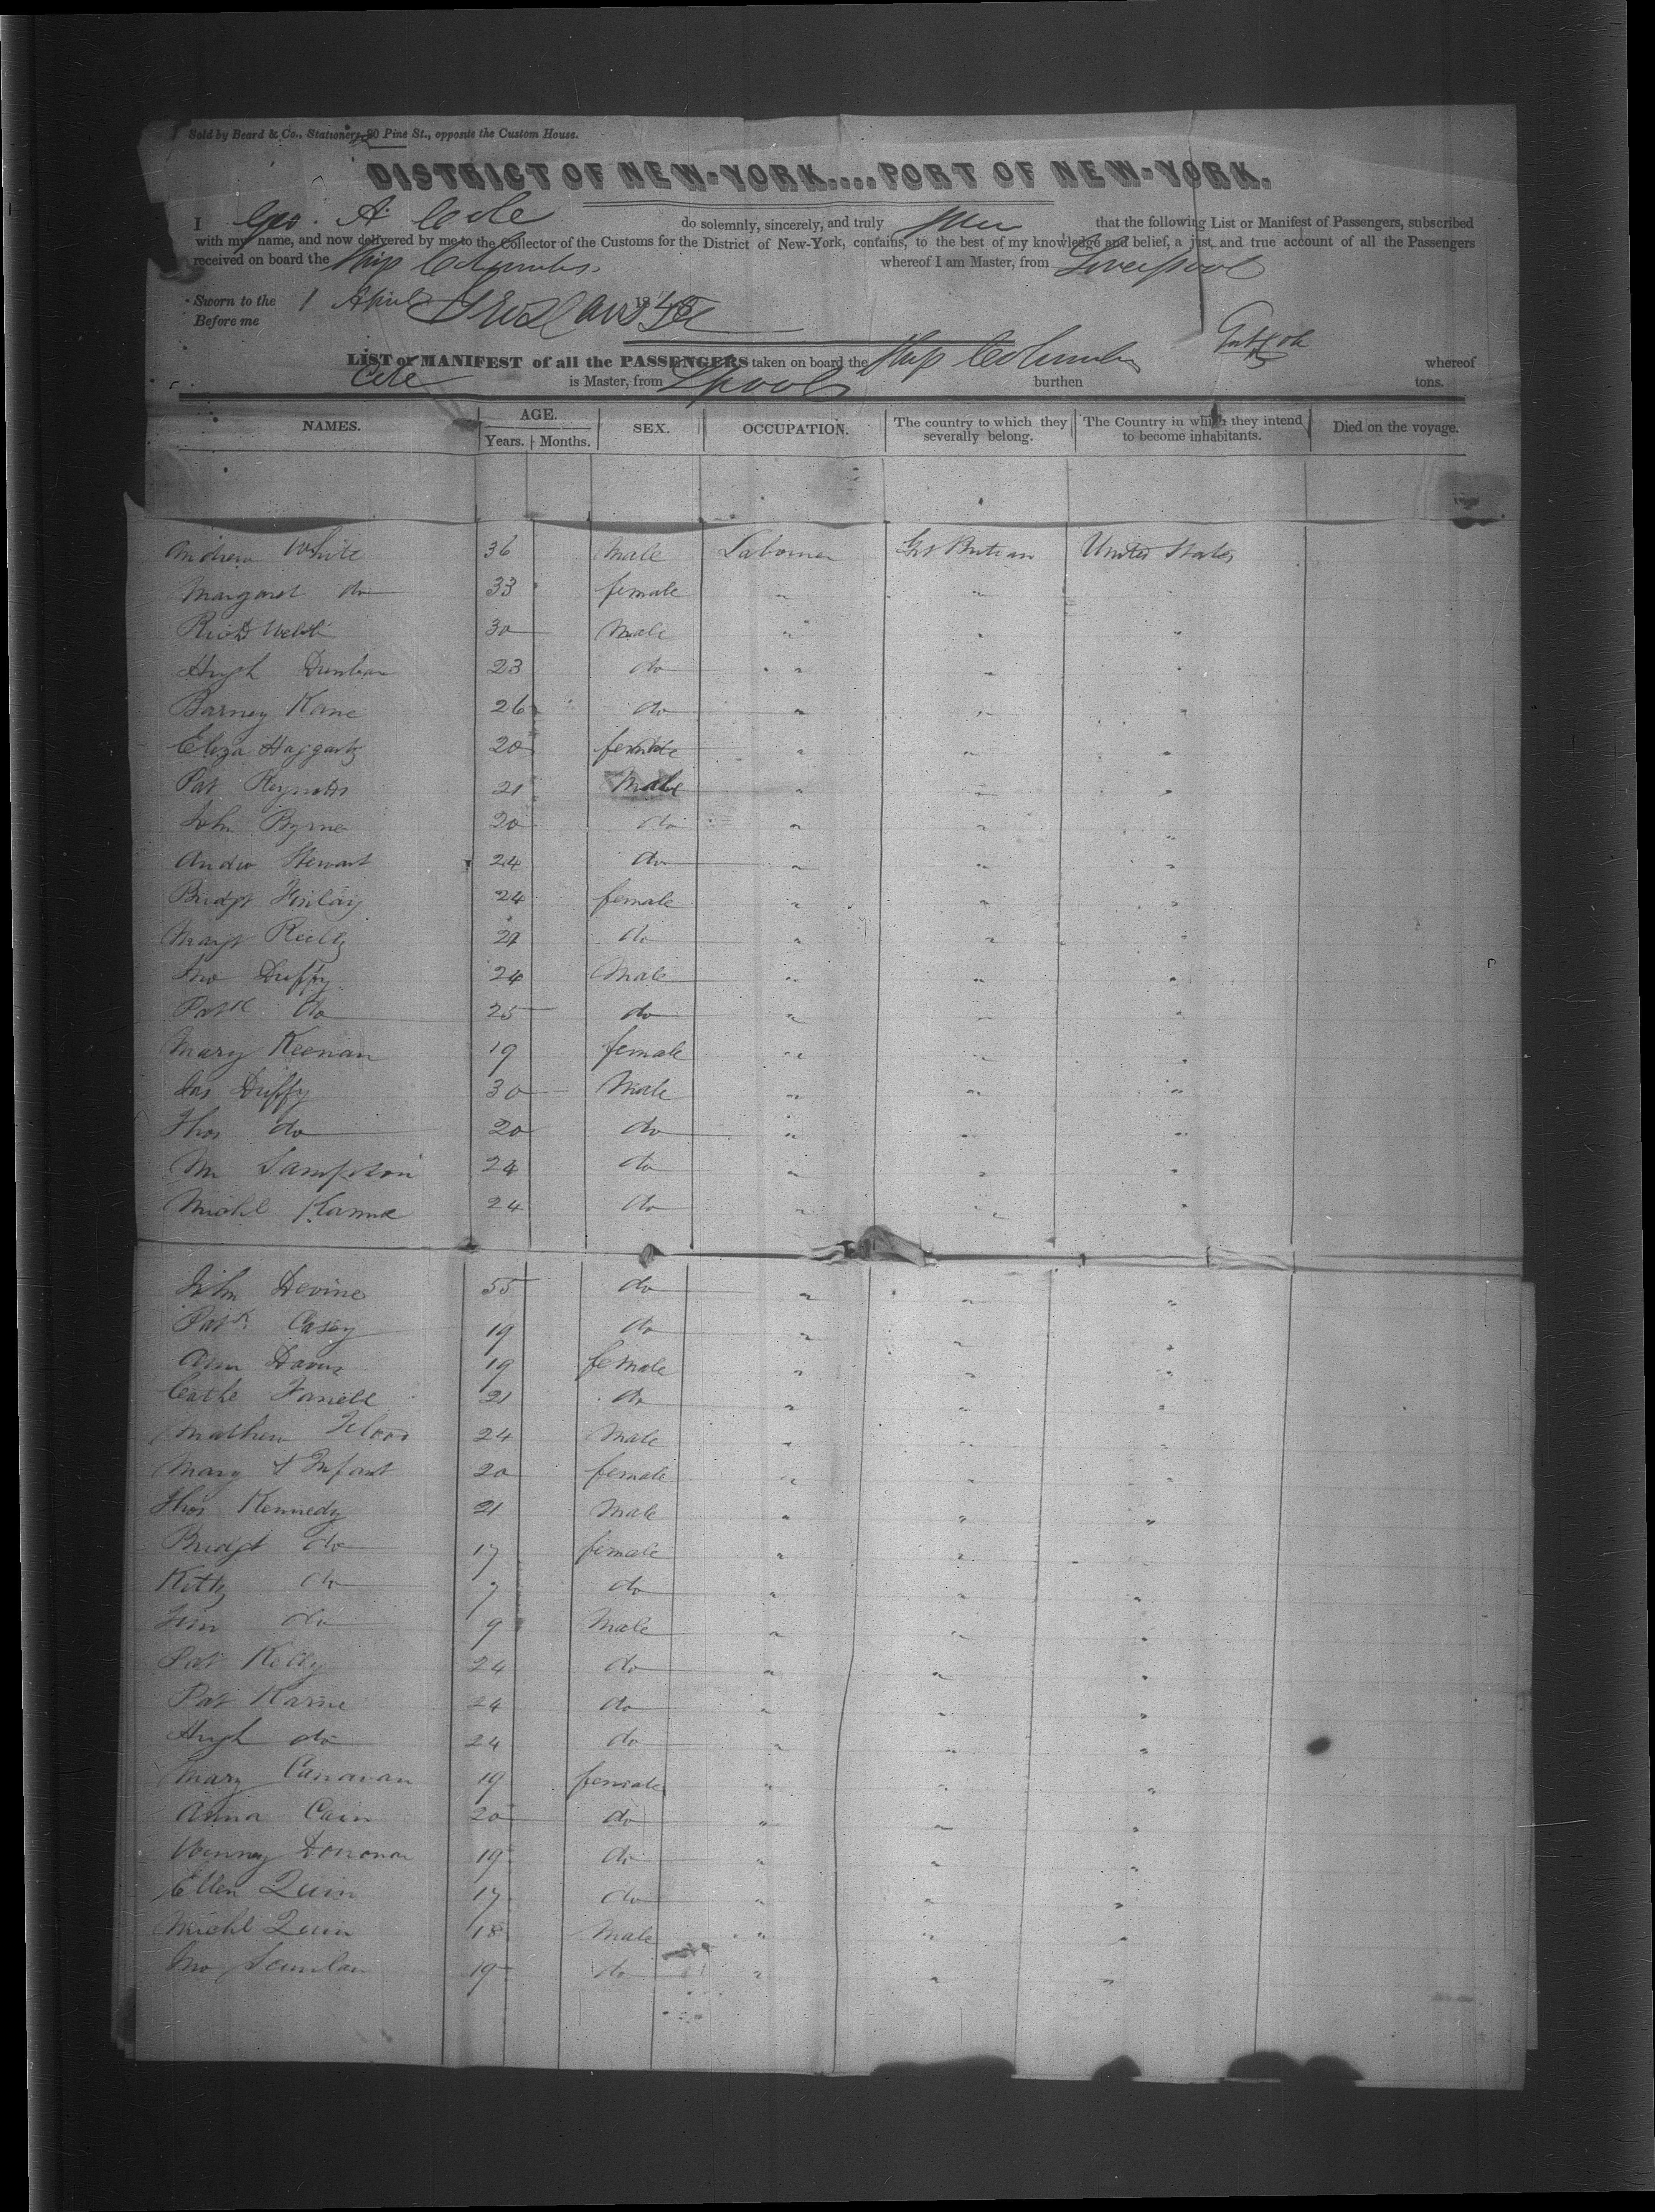 Sold by Beard & Co., Stationers, 80 Pine St., opposite the Custom House.
DISTRICT OF NEW-YORK....PORT OF NEW-YORK.
I Geo. A. Cole do solemnly, sincerely, and truly that the following List or Manifest of Passengers, subscribed
with my name, and now delivered by me to the Collector of the Customs for the District of New-York, contains, to the best of my knowledge and belief, a just and true account of all the Passengers
received on board the Ship Columbus whereof I am Master, from Liverpool
Sworn to the 1 April 1848
Before me
LIST or MANIFEST of all the PASSENGERS taken on board the Ship Columbus whereof
Cole is Master, from Lpool burthen tons.
NAMES. AGE. Years. Months. SEX. OCCUPATION. The country to which they severally belong. The Country in which they intend to become inhabitants. Died on the voyage.
Andrew White 36 Male Labourer Gt Britain United States
Margaret do 33 female " " "
Richd Welsh 30 Male " " "
Hugh Dunbar 23 do " " "
Barney Kane 26 do " " "
Eliza Haggarty 20 female " " "
Pat Reynolds 21 Male " " "
John Byrne 20 do " " "
Andw Stewart 24 do " " "
Bridgt Finlay 24 female " " "
Margt Reilly 21 do " " "
Jno Duffy 24 Male " " "
Patk do 25 do " " "
Mary Keenan 19 female " " "
Jas Duffy 30 Male " " "
Thos do 20 do " " "
Wm Sampson 24 do " " "
Michl 24 do " " "
John Devine 55 do " " "
Patk Casey 19 do " " "
Ann Davis 19 female " " "
Cathe Farrell 21 do " " "
Mathew Flood 24 Male " " "
Mary & Infant 20 female " " "
Thos Kennedy 21 Male " " "
Bridgt do 17 female " " "
Kitty do 7 do " " "
Jim do 9 Male " " "
Pat Kelly 24 do " " "
Pat Karne 24 do " " "
Hugh do 24 do " " "
Mary Canavan 19 female " " "
Anna Cain 20 do " " "
Winny Donovan 19 do " " "
Ellen Quin 17 do " " "
Michl Quin 18 Male " " "
Jno Scanlan 19 do " " "